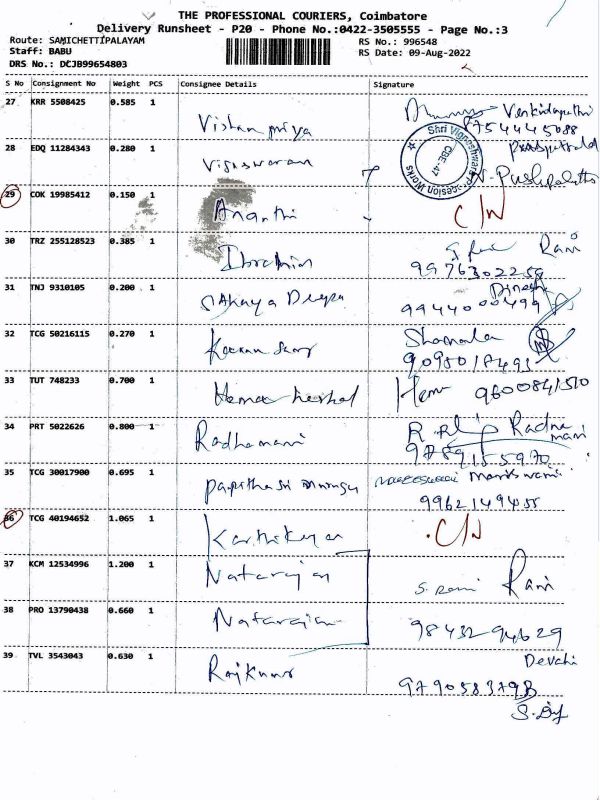 THE PROFESSIONAL COURIERS, Coimbatore
Delivery Runsheet - P20 - Phone No.:0422-3505555 - Page No.:3
Route: SAMICHETTIPALAYAM RS No.: 996548
Staff: BABU RS Date: 09-Aug-2022
DRS No.: DCJB99654803
S No Consignment No Weight PCS Consignee Details Signature
27 KRR 5508425 0.585 1 Vishnu priya
8754445088
28 EDQ 11284343 0.280 1 Vigneswaran
Shri Vigneshwara
CBE-47
29 COK 19985412 0.150 1 Ananthi C/N
30 TRZ 255128523 0.385 1 Ibrahim Rani
9976302259
31 TNJ 9310105 0.200 1 Deepa Dinesh
9944000499
32 TCG 50216115 0.270 1 Shamala
33 TUT 748233 0.700 1 Hema 9600841510
34 PRT 5022626 0.800 1 Radhamani Radha
mani
9789155970
35 TCG 30017900 0.695 1 Mariswami
9962149455
36 TCG 40194652 1.065 1 Karthikeyan C/N
37 KCM 12534996 1.200 1 Natarajan S. Rani Rani
38 PRO 13790438 0.660 1 Natarajan 9843294629
39 TVL 3543043 0.630 1 Rajkumar Devaki